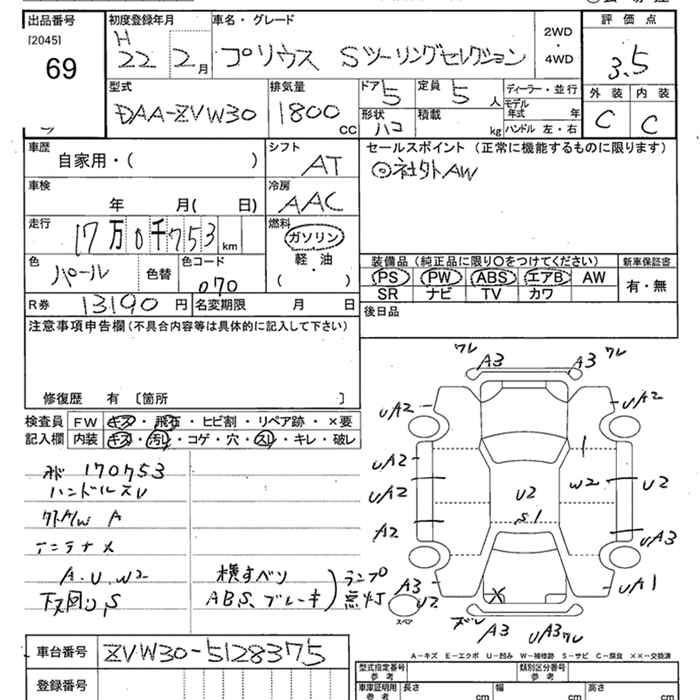 出品番号
[2045]
69
初度登録年月
H 22 2月
車名・グレード
プリウス Sツーリングセレクション
2WD
・
4WD
評価点
3.5
外装 内装
C C
型式
DAA-ZVW30
排気量
1800 cc
ドア
5
定員
5 人
形状
ハコ
積載
kg
ディーラー・並行
モデル年式 年
ハンドル 左・右
車歴
自家用・( )
シフト
AT
セールスポイント (正常に機能するものに限ります)
◎社外AW
車検
年 月( 日)
冷房
AAC
走行
17万0千753 km
燃料
ガソリン
軽・油
( )
色
パール
色替
色コード
070
装備品 (純正品に限り〇をつけてください)
PS PW ABS エアB AW
SR ナビ TV カワ
新車保証書
有・無
R券 13190 円
名変期限 月 日
後日品
注意事項申告欄 (不具合内容等は具体的に記入して下さい)
修復歴 有 [箇所 ]
検査員
記入欄
FW キズ・飛石・ヒビ割・リペア跡・×要
内装 キズ・汚レ・コゲ・穴・スレ・キレ・破レ
170753
ハンドルスレ
外A/W A
アンテナメ
A.U.W2
下又凹リ,S
横すべり
ABS、ブレーキ
ランプ
点灯
ワレ A3 A3 ワレ
UA2 UA2
UA2 1
UA2 W2 U2
U2
S1
A2 UA3
A3 UA1
U2
スペア
X
A3 UA3 ワレ
A-キズ E-エクボ U-凹み W-補修跡 S-サビ C-腐食 ××-交換済
車台番号 ZVW30-5128375
登録番号
型式指定番号
参考
類別区分番号
参考
車庫証明用
参考
長さ cm
幅 cm
高さ cm